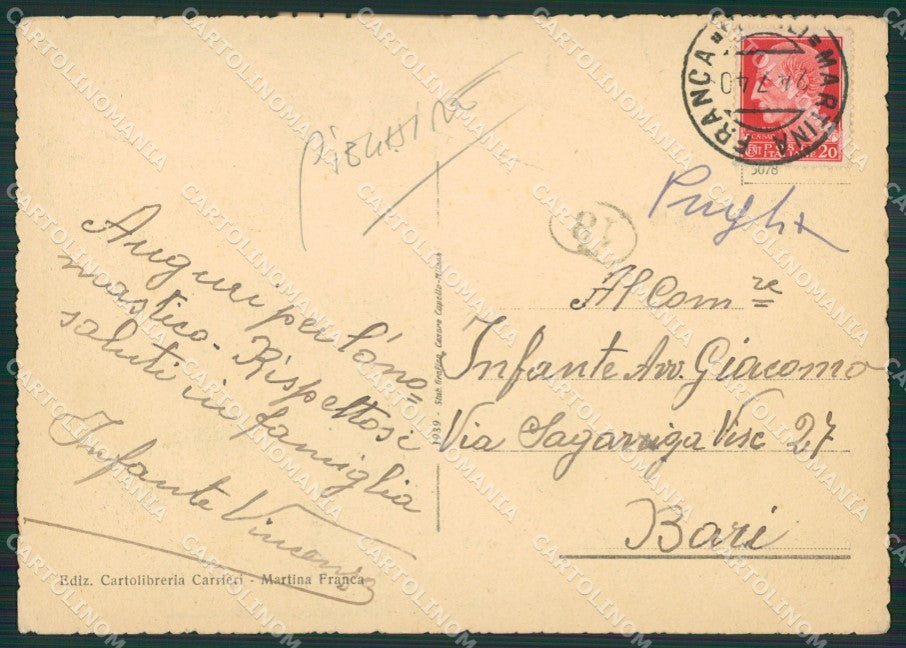 FRANCA MARTINA
24 7 40
POSTE ITALIANE 20
5078
Puglia
18
Auguri per l'ono=
mastico. Rispettosi
saluti in famiglia
Infante Vincenzo
Al Com. re
Infante Avv. Giacomo
Via Sagarriga Visc 27
Bari
1939 - Stab. Grafico Cesare Capello - Milano
Ediz. Cartolibreria Carrieri - Martina Franca
CARTOLINOMANIA